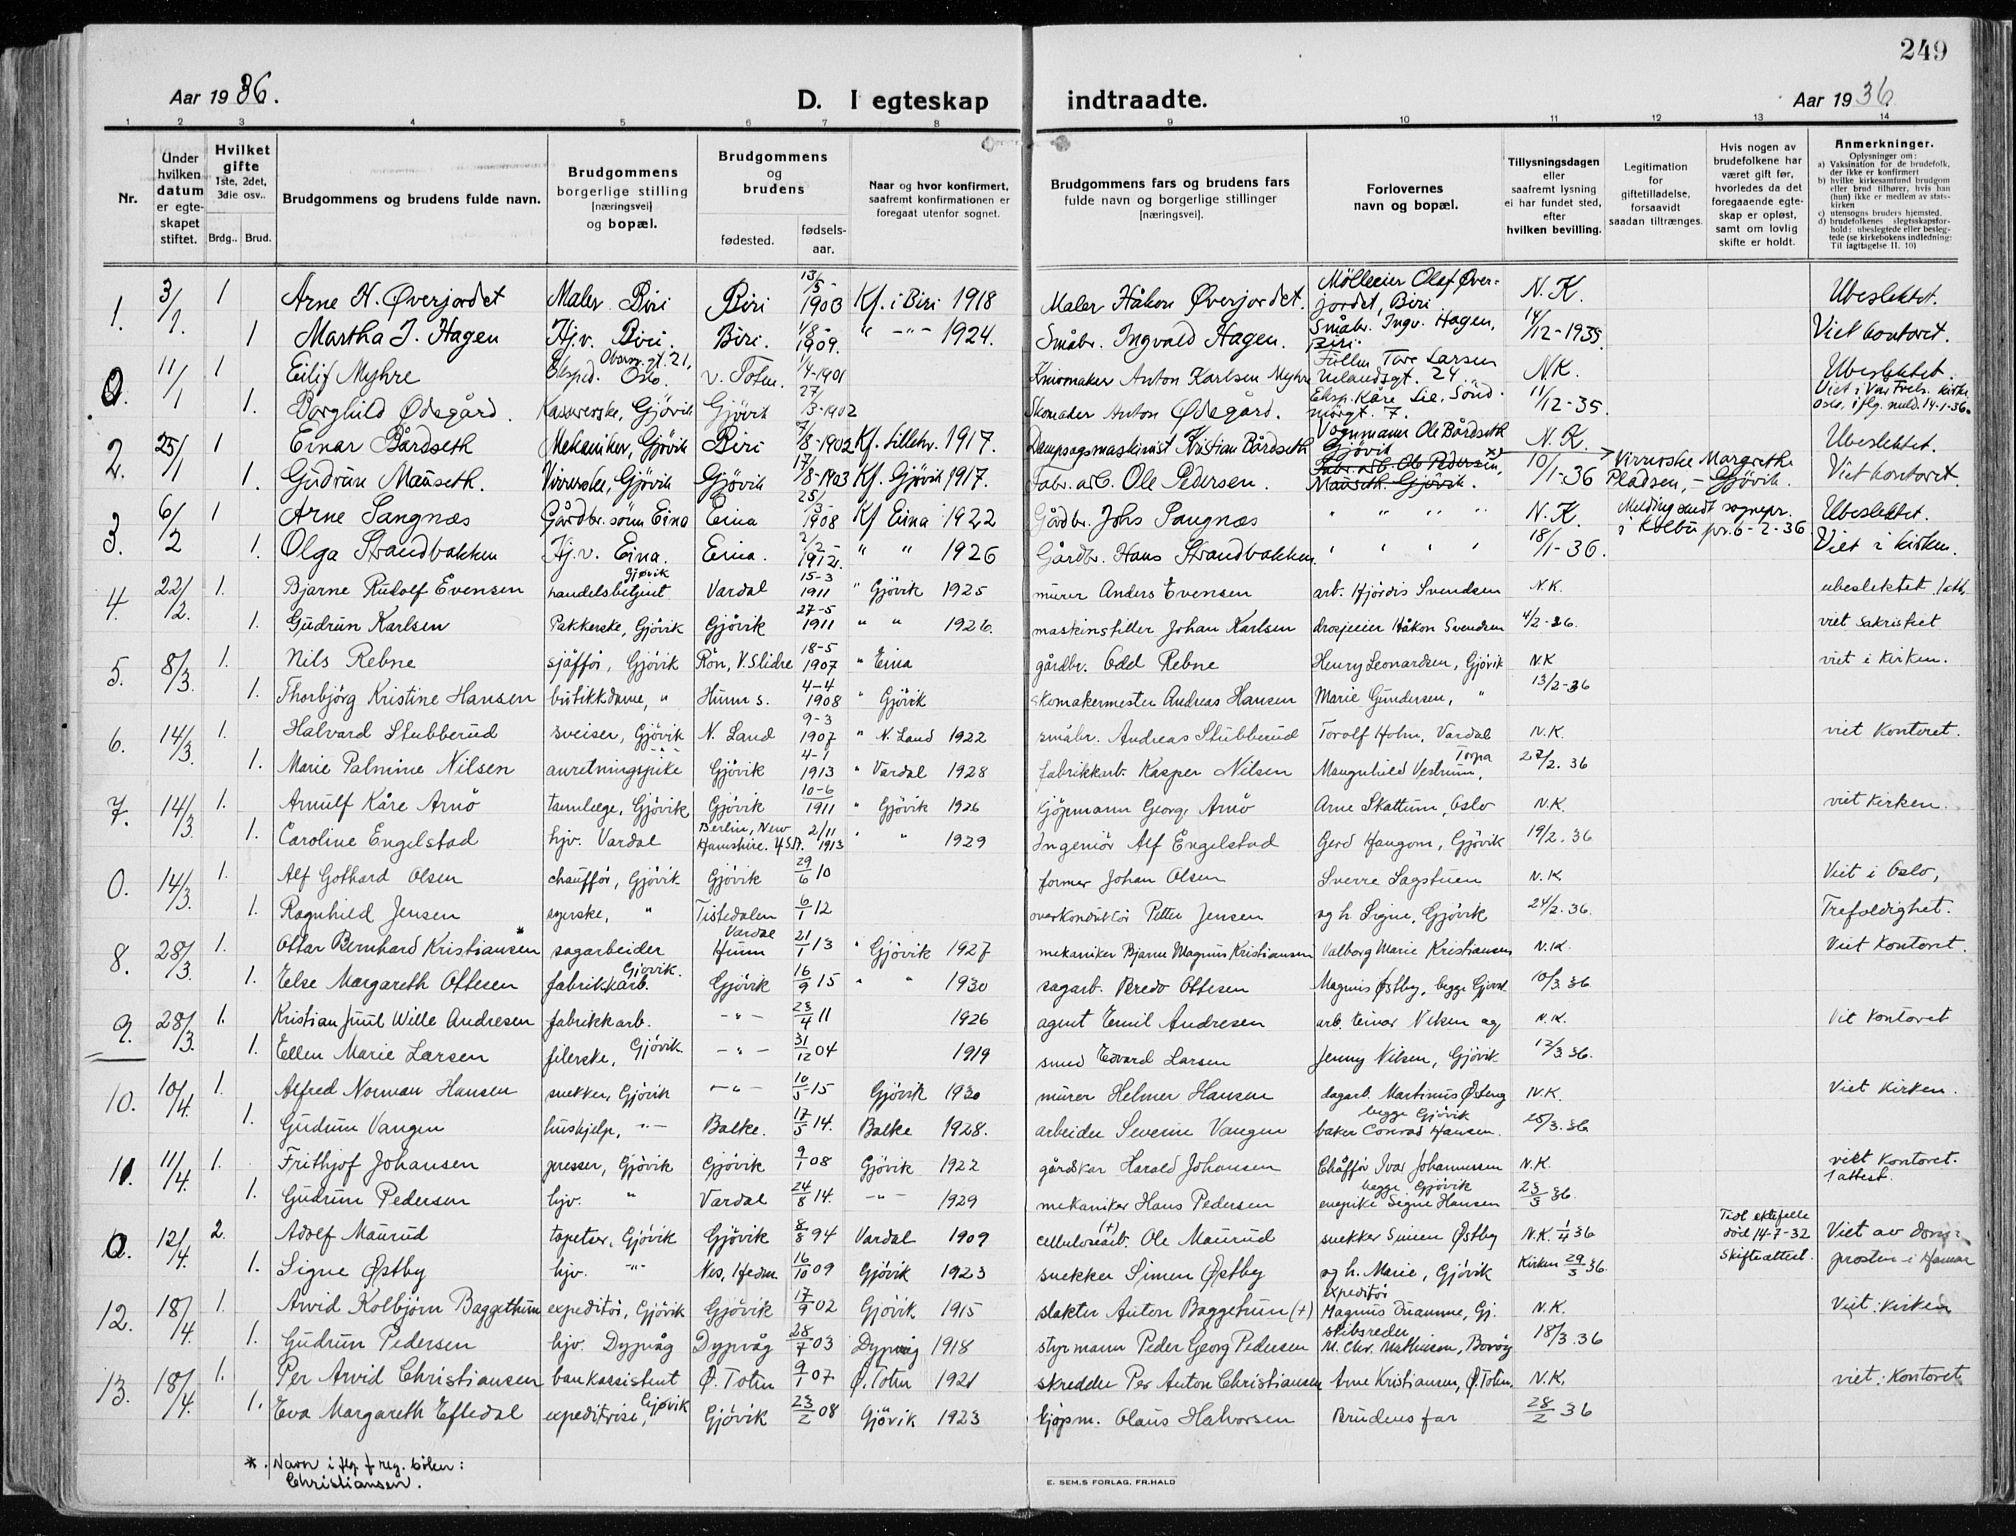 249
Aar 1936.
D. I egteskap indtraadte.
Aar 1936.
1 2 3 4 5 6 7 8 9 10 11 12 13 14
Nr.
Under hvilken datum er egteskapet stiftet.
Hvilket gifte 1ste, 2det, 3die osv.. Brdg.. Brud.
Brudgommens og brudens fulde navn.
Brudgommens borgerlige stilling [næringsvei] og bopæl.
Brudgommens og brudens fødested. fødselsaar.
Naar og hvor konfirmert, saafremt konfirmationen er foregaat utenfor sognet.
Brudgommens fars og brudens fars fulde navn og borgerlige stillinger [næringsvei].
Forlovernes navn og bopæl.
Tillysningsdagen eller saafremt lysning ei har fundet sted, efter hvilken bevilling.
Legitimation for giftetilladelse, forsaavidt saadan tiltrænges.
Hvis nogen av brudefolkene har været gift før, hvorledes da det foregaaende egteskap er opløst, samt om lovlig skifte er holdt.
Anmerkninger.
Oplysninger om:
a) Vaksination for de brudefolk, der ikke er konfirmert
b) hvilke kirkesamfund brudgom eller brud tilhører, hvis han (hun) ikke er medlem av statskirken
c) utensogns bruders hjemsted.
d) brudefolkenes slegtsskapsforhold: ubeslegtede eller beslegtede (se kirkebokens indledning: Til iagttagelse II. 10)
1. 3/1. 1 Arne H. Øverjordet Maler Biri Biri 13/5-1903 Kf. i Biri 1918 Maler Håkon Øverjordet. Mølleeier Olaf Øverjordet, Biri N.K. Ubeslektet.
1 Martha J. Hagen Hj.v. Biri. Biri. 1909. " -"- 1924. Småbr. Ingvald Hagen. Småbr. Ingv. Hagen, Biri. 14/12-1935. Viet kontoret.
0. 11/1 1 Eilif Myhre Eksped. Oslo. v. Toten. 1/4-1901 Anton Karlsen Myhre Tore Larsen Uelandsgt. 24 N.K. Ubeslektet.
1. Borghild Ødegård. Gjövik Gjövik 27/3-1902 Skomaker Anton Ødegård. Eksp. Kåre Lie, 7. 11/12-35. Viet i Vår Frels. kirke Oslo, iflg. meld. 14-1-36.
2. 25/1 1 Einar Bårdseth Mekaniker, Gjövik Biri 7/8-1902 Kf. Lilleh. 1917. Dampsagsmaskinist Kristian Bårdseth Vognmann Ole Bårdseth Gjövik N.K. Ubeslektet.
1. Gudrun Mauseth. Virrerske, Gjövik Gjövik 17/8-1903 Kf. Gjövik 1917. Fabr. arb. Ole Pedersen. Fabr. arb. Ole Pedersen, Mauseth. Gjövik. 10/1-36 Virrerske Margrethe Pladsen, - Gjövik. Viet kontoret.
3. 6/2 1 Arne Sangnæs Gårdbr. sönn Eina Eina 25/3-1908 Kf Eina 1922 Gårdbr. Johs Sangnæs " " " " N.K. Melding sendt sognepr. i Kolbu pr. 6-2-36. Ubeslektet.
1. Olga Strandbakken Hj.v. Eina. Eina. 2/2-1912. " " 1926 Gårdbr. Hans Strandbakken " " " " 18/1-36. Viet i kirken.
4. 22/2. 1. Bjarne Rudolf Evensen handelsbetjent Gjøvik Vardal 15-3 1911 " Gjövik 1925 murer Anders Evensen arb. Hjördis Svendsen N.K. ubeslektet
1. Gudrun Karlsen Pakkerske, Gjövik Gjövik 27-5 1911 " " 1926. maskinstiller Johan Karlsen drosjeeier Håkon Svendsen 4/2-36. viet sakristiet
5. 8/3. 1. Nils Rebne sjåfför, Gjövik Røn, V. Slidre 18-5 1907 " Eina gårdbr. Odd Rebne Henry Leonardsen, Gjövik N.K viet i kirken.
1. Thorbjörg Kristine Hansen butikkdame, " Hunn s. 4-4 1908 " Gjövik skomakermester Andreas Hansen Marie Gundersen, " 13/2-36
6. 14/3. 1. Halvard Stubberud sveiser, Gjövik N. Land 9-3 1907 " N. Land 1922 småbr. Andreas Stubberud Torolf Holm, Vardal N.K. viet kontoret.
1. Marie Palmine Nilsen anretningspike Gjövik 4-1 1913 " Vardal 1928 fabrikkarb. Kasper Nilsen Mangnhild Vestrum, Torpa 22/2. 36
7. 14/3. 1. Arnulf Kåre Arnö tannlæge, Gjövik Gjövik 10-6 1911 " Gjövik 1926 Kjöpmann Georg Arnö Arne Skattum, Oslo N.K. viet kirken.
1. Caroline Engelstad hjv. Vardal Berlin, New Hamshire. U S A. 2/11 1913 " " 1929 Ingeniör Alf Engelstad Gerd Haugom, Gjövik 19/2. 36
0. 14/3. 1. Alf Gothard Olsen chauffør, Gjövik Gjövik 29/6 10 former Johan Olsen Sverre Sagstuen N.K Viet i Oslo,
1. Ragnhild Jensen syerske, " Tistedalen 6/1 12 overkonduktör Petter Jensen og h. Signe, Gjövik 24/2. 36. Trefoldighet.
8. 28/3. 1. Ottar Bernhard Kristiansen * sagarbeider Vardal Hunn 21/1 13 " Gjövik 1927 mekaniker Bjarne Magnus Kristiansen Valborg Marie Kristiansen N.K. Viet kontoret.
1. Else Margareth Ottesen fabrikkarb. Gjövik. Gjövik 16/9 15 " " 1930 sagarb. Bredo Ottesen Magnus Østby, begge Gjövik 10/3. 36
9. 28/3. 1. Kristian Juul Wille Andresen fabrikkarb. -"- 23/4 11 1926 agent Emil Andresen arb. Einar Nilsen og N.K. Vie kontoret
1. Ellen Marie Larsen filerske, Gjövik -"- 31/12 04 1919 smed Edvard Larsen Jenny Nilsen, Gjövik 12/3. 36.
10. 10/4. 1. Alfred Norman Hansen snekker, Gjövik -"- 10/5-15 Gjövik 1930 murer Helmer Hansen dagarb. Martinus N.K. Viet kirken.
1. Gudrun Vangen hushjelp, "- Balke. 17/5 14. Balke 1928. arbeider Severin Vangen begge Gjövik baker Conrad Hansen. 25/3. 36
11. 11/4. 1. Frithjof Johansen presser, Gjövik Gjövik 9/1 08 Gjövik 1922 gårdskar Harald Johansen Chåffør Ivar Johannessen N.K. viet kontoret. 1 attest.
1. Gudrun Pedersen hjv. " Vardal 24/8 14. -"- 1929 mekaniker Hans Pedersen begge Gjövik Signe Hansen 23/3 36.
0. 12/4. 2. Adolf Maurud tapetser, Gjövik Gjövik 8/8 94 Vardal 1909 cellulosearb. (+) Ole Maurud snekker Simen Østby N.K. 1/4 36 Tidl ektefelle död 14-7-32 Skifteattest. Viet av domprosten i Hamar
1. Signe Østby hjv. "- Nes, Hedm. 16/10 09 Gjövik 1923 snekker Simen Østby og h. Marie, Gjövik Kirken 29/3 36.
12. 18/4. 1. Arvid Kolbjørn Baggethun expeditör, Gjövik Gjövik 17/9 02 Gjövik 1915 slakter Anton Baggethun (+) expeditör Magnus Duamme, Gj. N.K. Viet: kirken
1. Gudrun Pedersen hjv. Dypvåg Dypvåg 28/7 03 Dypvåg 1918 styrmann Peder Georg Pedersen skibsreder M. Chr. Mathiesen, 18/3 36
13. 18/4. 1. Per Arvid Christiansen bankassistent Ø. Toten 9/1 07. Ø. Toten 1921 skredder Per Anton Christiansen Arne Kristiansen, Ø. Toten. N.K. viet: kontoret
1. Eva Margareth Eftedal expeditrise, Gjøvik Gjövik 23/2 08 Gjövik 1923 kjöpm. Olaus Halvorsen Brudens far 28/2 36
*. Navn i flg. f reg. bölen:
Christiansen.
E. SEM.S FORLAG, FR.HALD